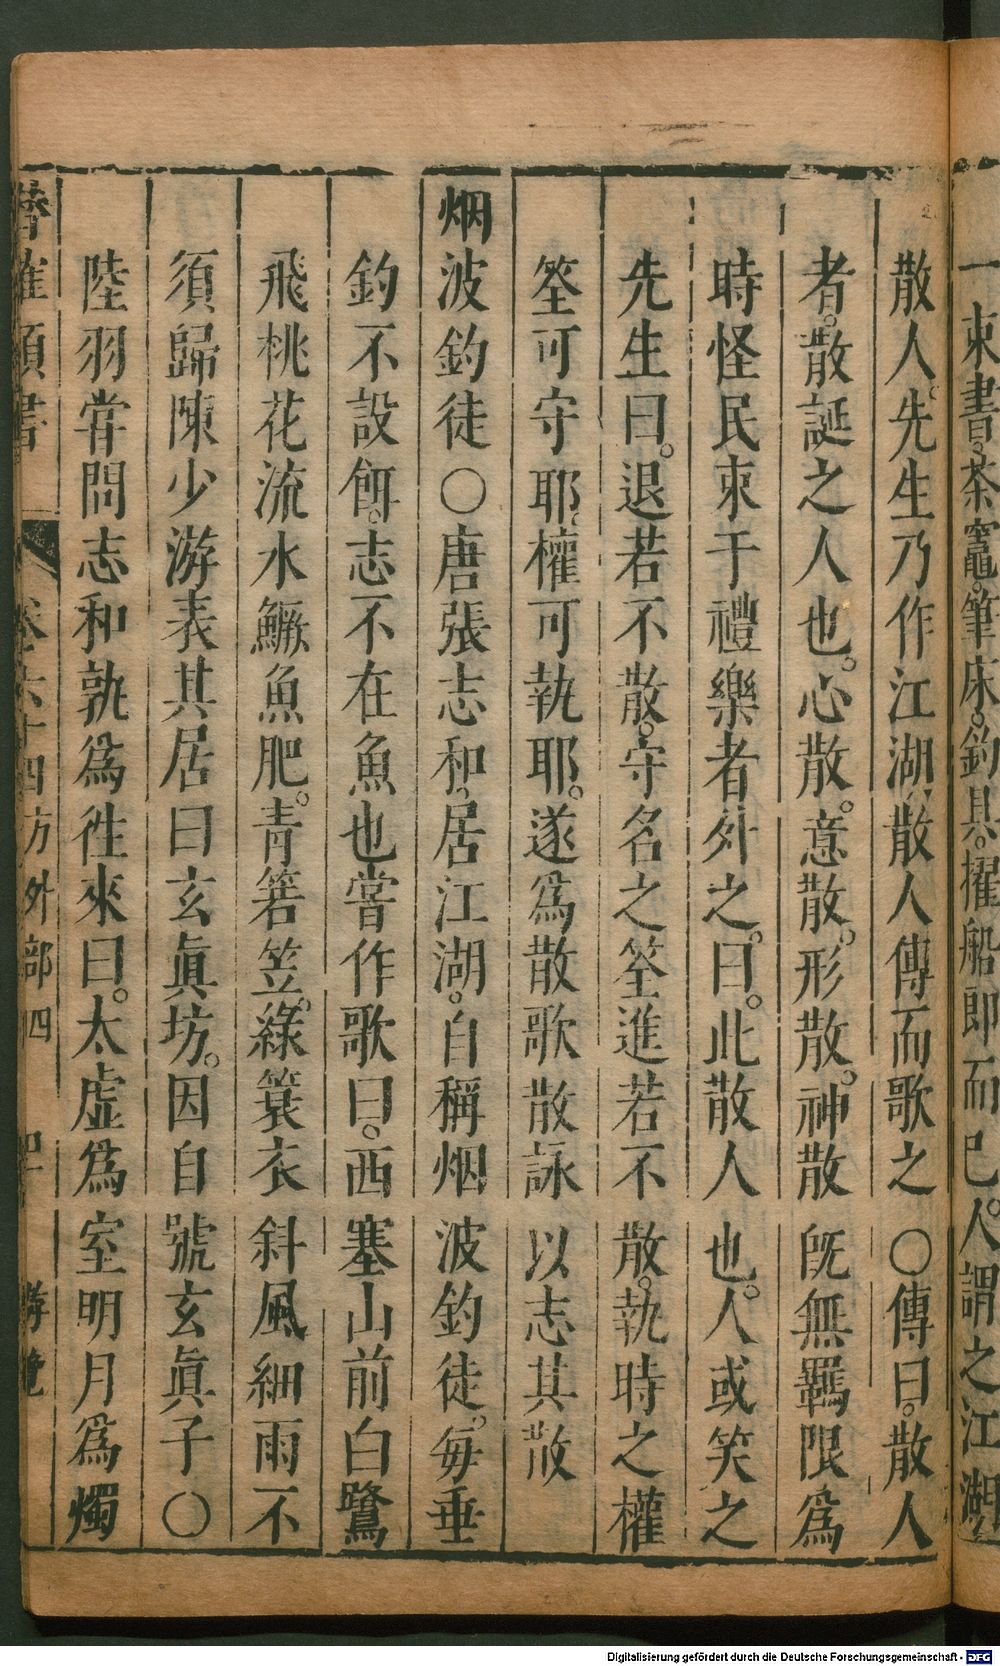 一束書。茶竈。筆床。釣具。擢船郎而已。人謂之江湖
散人。先生乃作江湖散人傳而歌之〇傳曰。散人
者。散誕之人也。心散。意散。形散。神散既無羈限爲
時怪民束于禮樂者外之。曰。此散人也。人或笑之
先生曰。退若不散。守名之筌進若不散。執時之權
筌可守耶。權可執耶。遂爲散歌散詠以志其散
烟波釣徒〇唐張志和。居江湖。自稱烟波釣徒。每垂
釣不設餌。志不在魚也嘗作歌曰。西塞山前白鷺
飛桃花流水鱖魚肥。青箬笠。綠簑衣斜風細雨不
須歸陳少游表其居曰玄眞坊。因自號玄眞子〇
陸羽甞問志和孰爲徃來曰。太虛爲室明月爲燭
卷六十四方外部四
Digitalisierung gefördert durch die Deutsche Forschungsgemeinschaft - DFG